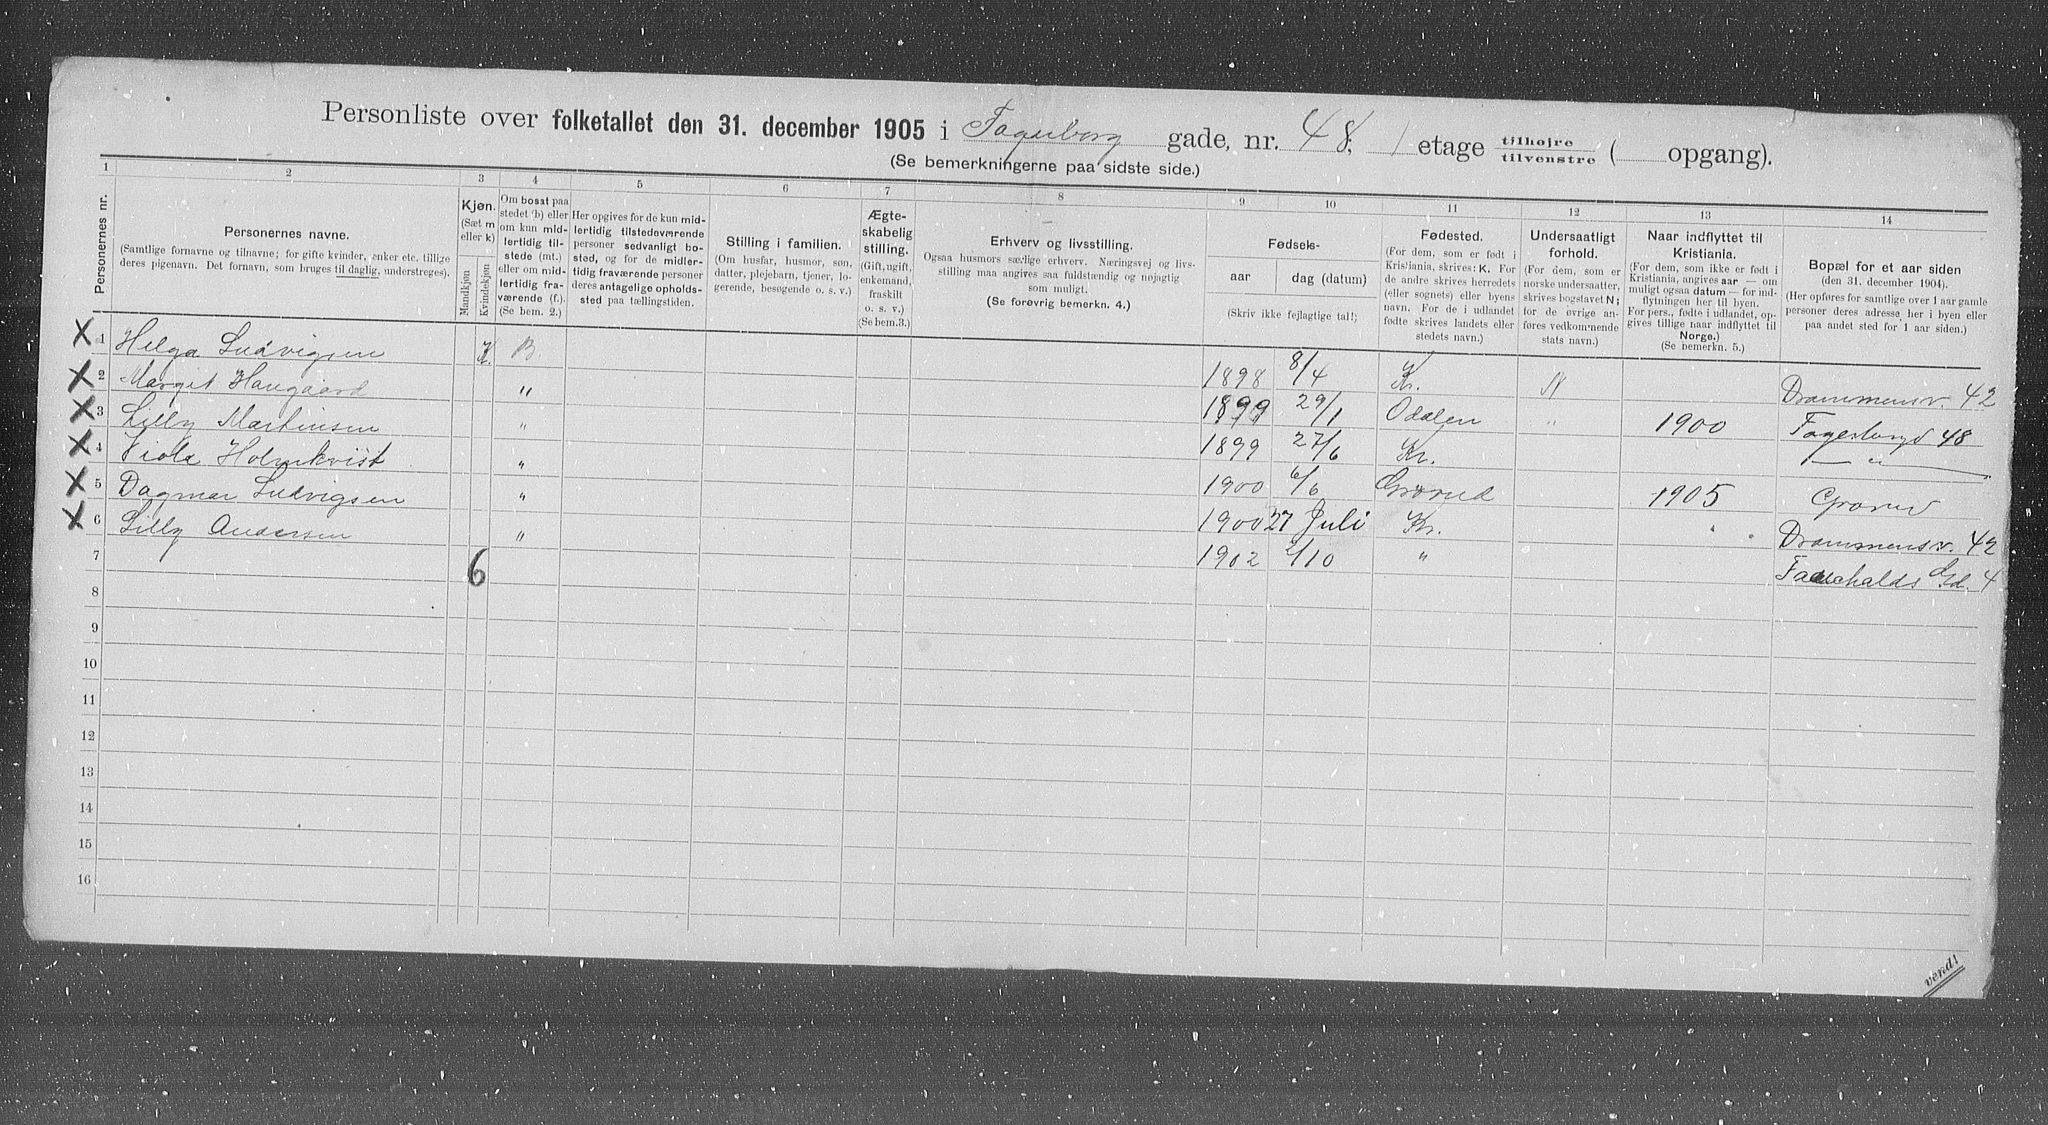 Personliste over folketallet den 31. december 1905 i Fagerborg gade, nr. 48, 1 etage tilhøjre tilvenstre ( opgang).
(Se bemerkningerne paa sidste side.)
1 2 3 4 5 6 7 8 9 10 11 12 13 14
Personernes nr.
Personernes navne.
(Samtlige fornavne og tilnavne; for gifte kvinder, enker etc. tillige
deres pigenavn. Det fornavn, som bruges til daglig, understreges).
Kjøn.
(Sæt m
eller k)
Mandkjøn
Kvindekjøn
Om bosat paa
stedet (b) eller
om kun mid-
lertidig til-
stede (mt.)
eller om mid-
lertidig fra-
værende (f.).
(Se bem. 2.)
Her opgives for de kun mid-
lertidig tilstedeværende
personer sedvanligt bo-
sted, og for de midler-
tidig fraværende personer
deres antagelige opholds-
sted paa tællingstiden.
Stilling i familien.
(Om husfar, husmor, søn,
datter, plejebarn, tjener, lo-
gerende, besøgende o. s. v.)
Ægte-
skabelig
stilling.
(Gift, ugift,
enkemand,
fraskilt
o. s. v.)
(Se bem. 3.)
Erhverv og livsstilling.
Ogsaa husmors særlige erhverv. Næringsvej og livs-
stilling maa angives saa fuldstændig og nøjagtig
som muligt.
(Se forøvrig bemerkn. 4.)
Fødsels-
aar
dag (datum)
(Skriv ikke fejlagtige tal!)
Fødested.
(For dem, som er født i
Kristiania, skrives: K. For
de andre skrives herredets
(eller sognets) eller byens
navn. For de i udlandet
fødte skrives landets eller
stedets navn.)
Undersaatligt
forhold.
(For dem, som er
norske undersaatter,
skrives bogstavet N;
for de øvrige an-
føres vedkommende
stats navn.)
Naar indflyttet til
Kristiania.
(For dem, som ikke er født i
Kristiania, angives aar — om
muligt ogsaa datum — for ind-
flytningen her til byen.
For pers., fødte i udlandet, op-
gives tillige naar indflyttet til
Norge.)
(Se bemerkn. 5.)
Bopæl for et aar siden
(den 31. december 1904).
(Her opføres for samtlige over 1 aar gamle
personer deres adresse, her i byen eller
paa andet sted for 1 aar siden.)
X 1 Helga Ludvigsen k B. 1898 8/4 Kr. N Drammensv. 42
X 2 Margit Haugaard " 1899 29/1 Odalen " 1900 Fagerborgd 48
X 3 Lilly Martinsen " 1899 27/6 Kr. — " —
X 4 Viola Holmkvist " 1900 6/6 Grorud 1905 Grorud
X 5 Dagmar Ludvigsen " 1900 27 Juli Kr. Drammensv. 42
X 6 Lilly Andersen " 1902 2/10 " Gd. 4
7 6
8
9
10
11
12
13
14
15
16
vend!